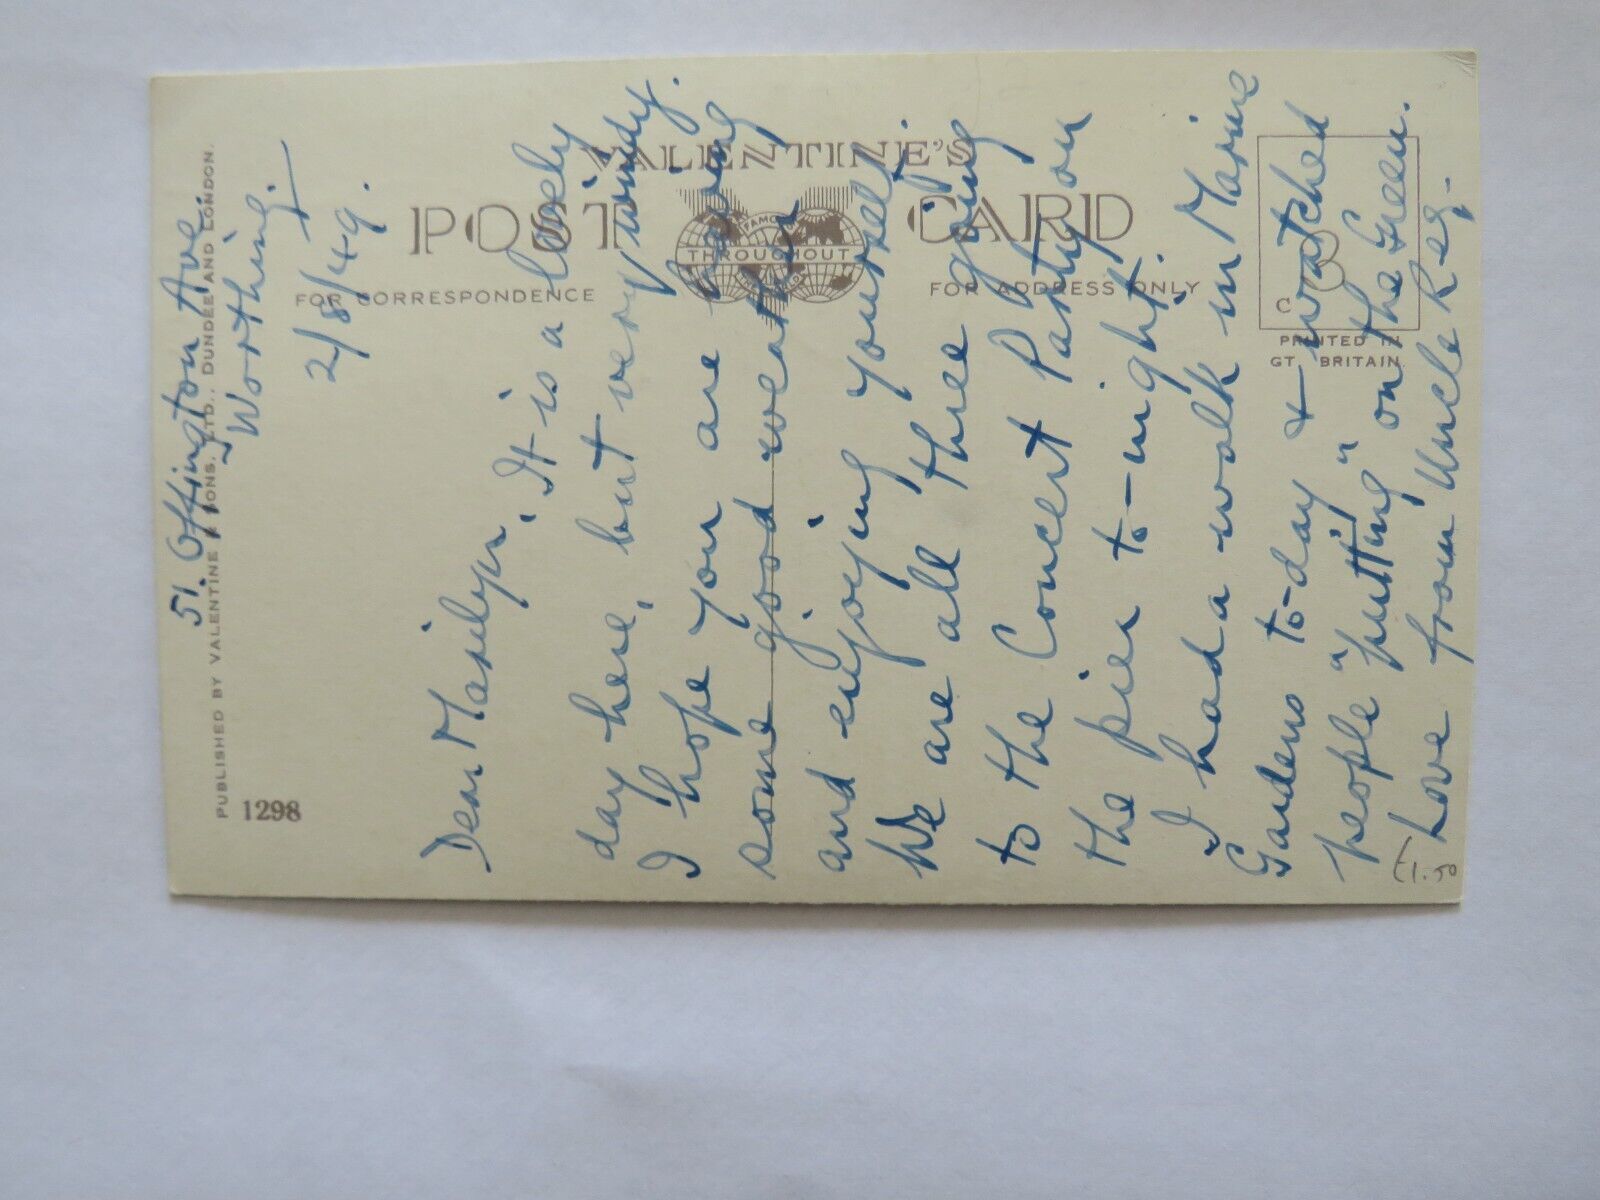 51. Offington Ave.
Worthing.
2/8/49.
Dear Marilyn, It is a lovely
day here, but very windy.
I hope you are having
some good weather
and enjoying yourself.
We are all three going
to the Concert Party on
the pier to-night.
I had a walk in Marine
Gardens to-day & watched
people "putting" on the Green.
Love from Uncle Reg.
£1.50
PUBLISHED BY VALENTINE & SONS, LTD., DUNDEE AND LONDON.
1298
VALENTINE'S
POST CARD
FAMOUS
THROUGHOUT
THE WORLD
FOR CORRESPONDENCE
FOR ADDRESS ONLY
PRINTED IN
GT. BRITAIN